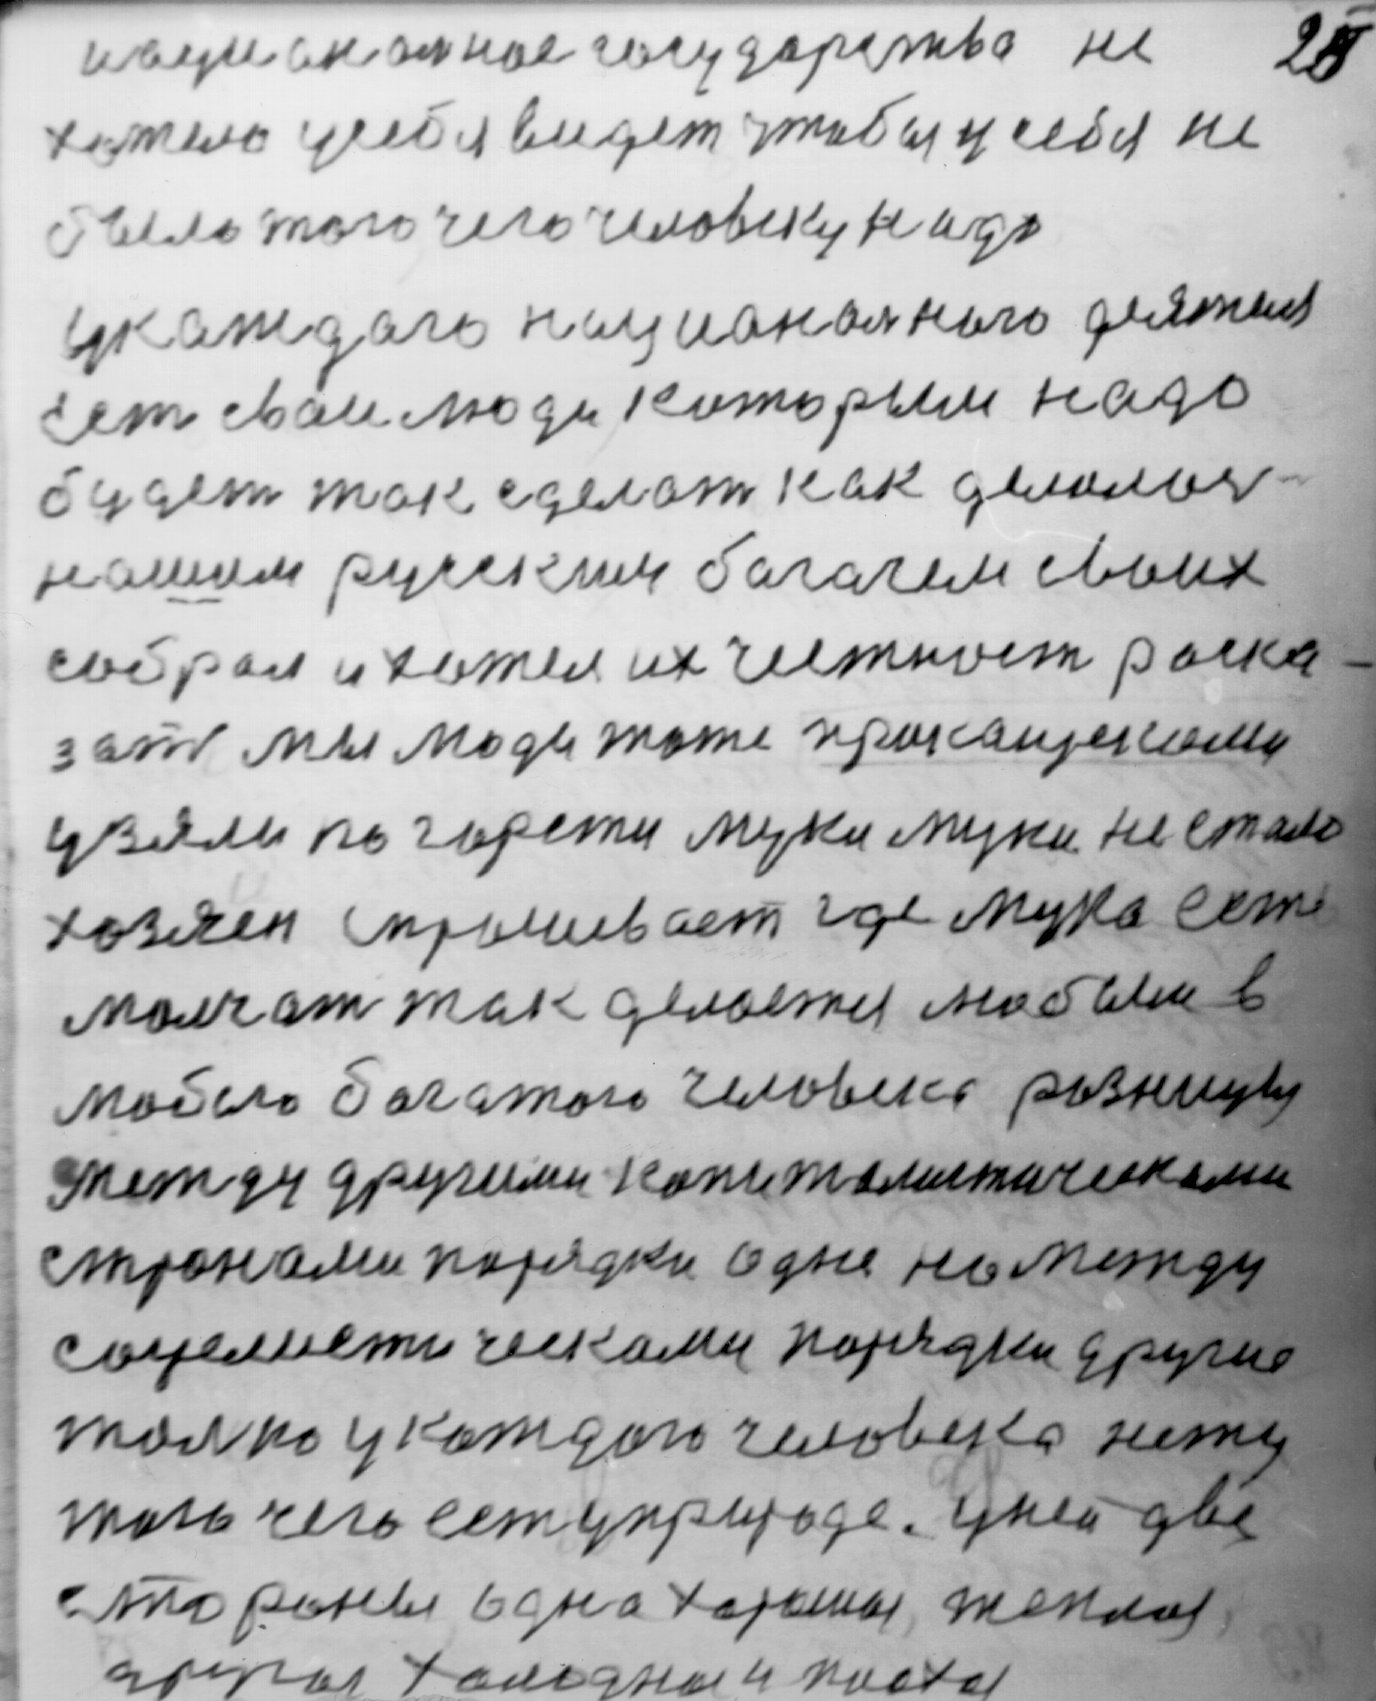 национальное государство не 28
хотело у себя видет чтобы у себя не
было того чего человеку надо
у каждого национального деятеля
ест свои люди которым надо
будет так сделат как делалос
нашим руским багачем своих
собрал и хотел их честност раска-
зат мы люди тоже
узяли по горсти муки муки не стало
хозяен спрошивает где мука есте
молчат так делается любыми в
любого багатого человека розницы
между другими капиталистическами
странами порядки одне но между
социлистическами порядки другие
толко у каждого человека нету
того чего ест у природе. у ней две
стороны одна хорошая, теплая,
другая холодная и плохая